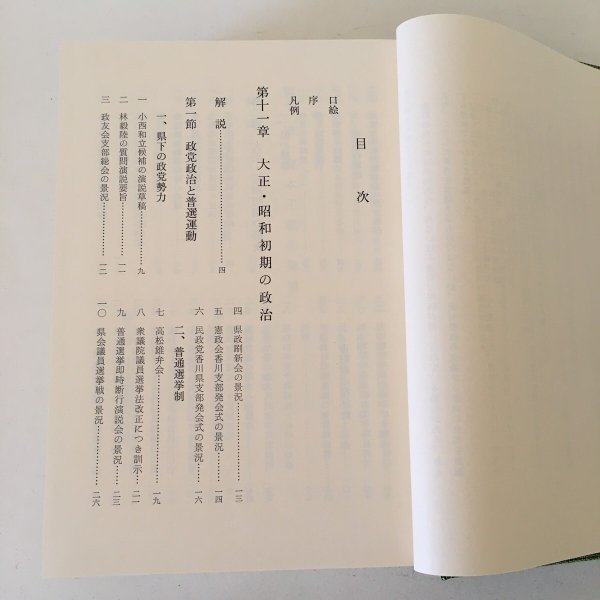 目次
口絵
序
凡例
第十一章 大正・昭和初期の政治
解説……四
第一節 政党政治と普選運動
一、県下の政党勢力
一 小西和立候補の演説草稿……九
二 林毅陸の質問演説要旨……一一
三 政友会支部総会の景況……一二
四 県政刷新会の景況……一三
五 憲政会香川支部発会式の景況……一四
六 民政党香川県支部発会式の景況……一六
二、普通選挙制
七 高松雄弁会……一九
八 衆議院議員選挙法改正につき訓示……二一
九 普通選挙即時断行演説会の景況……二三
一〇 県会議員選挙戦の景況……二六